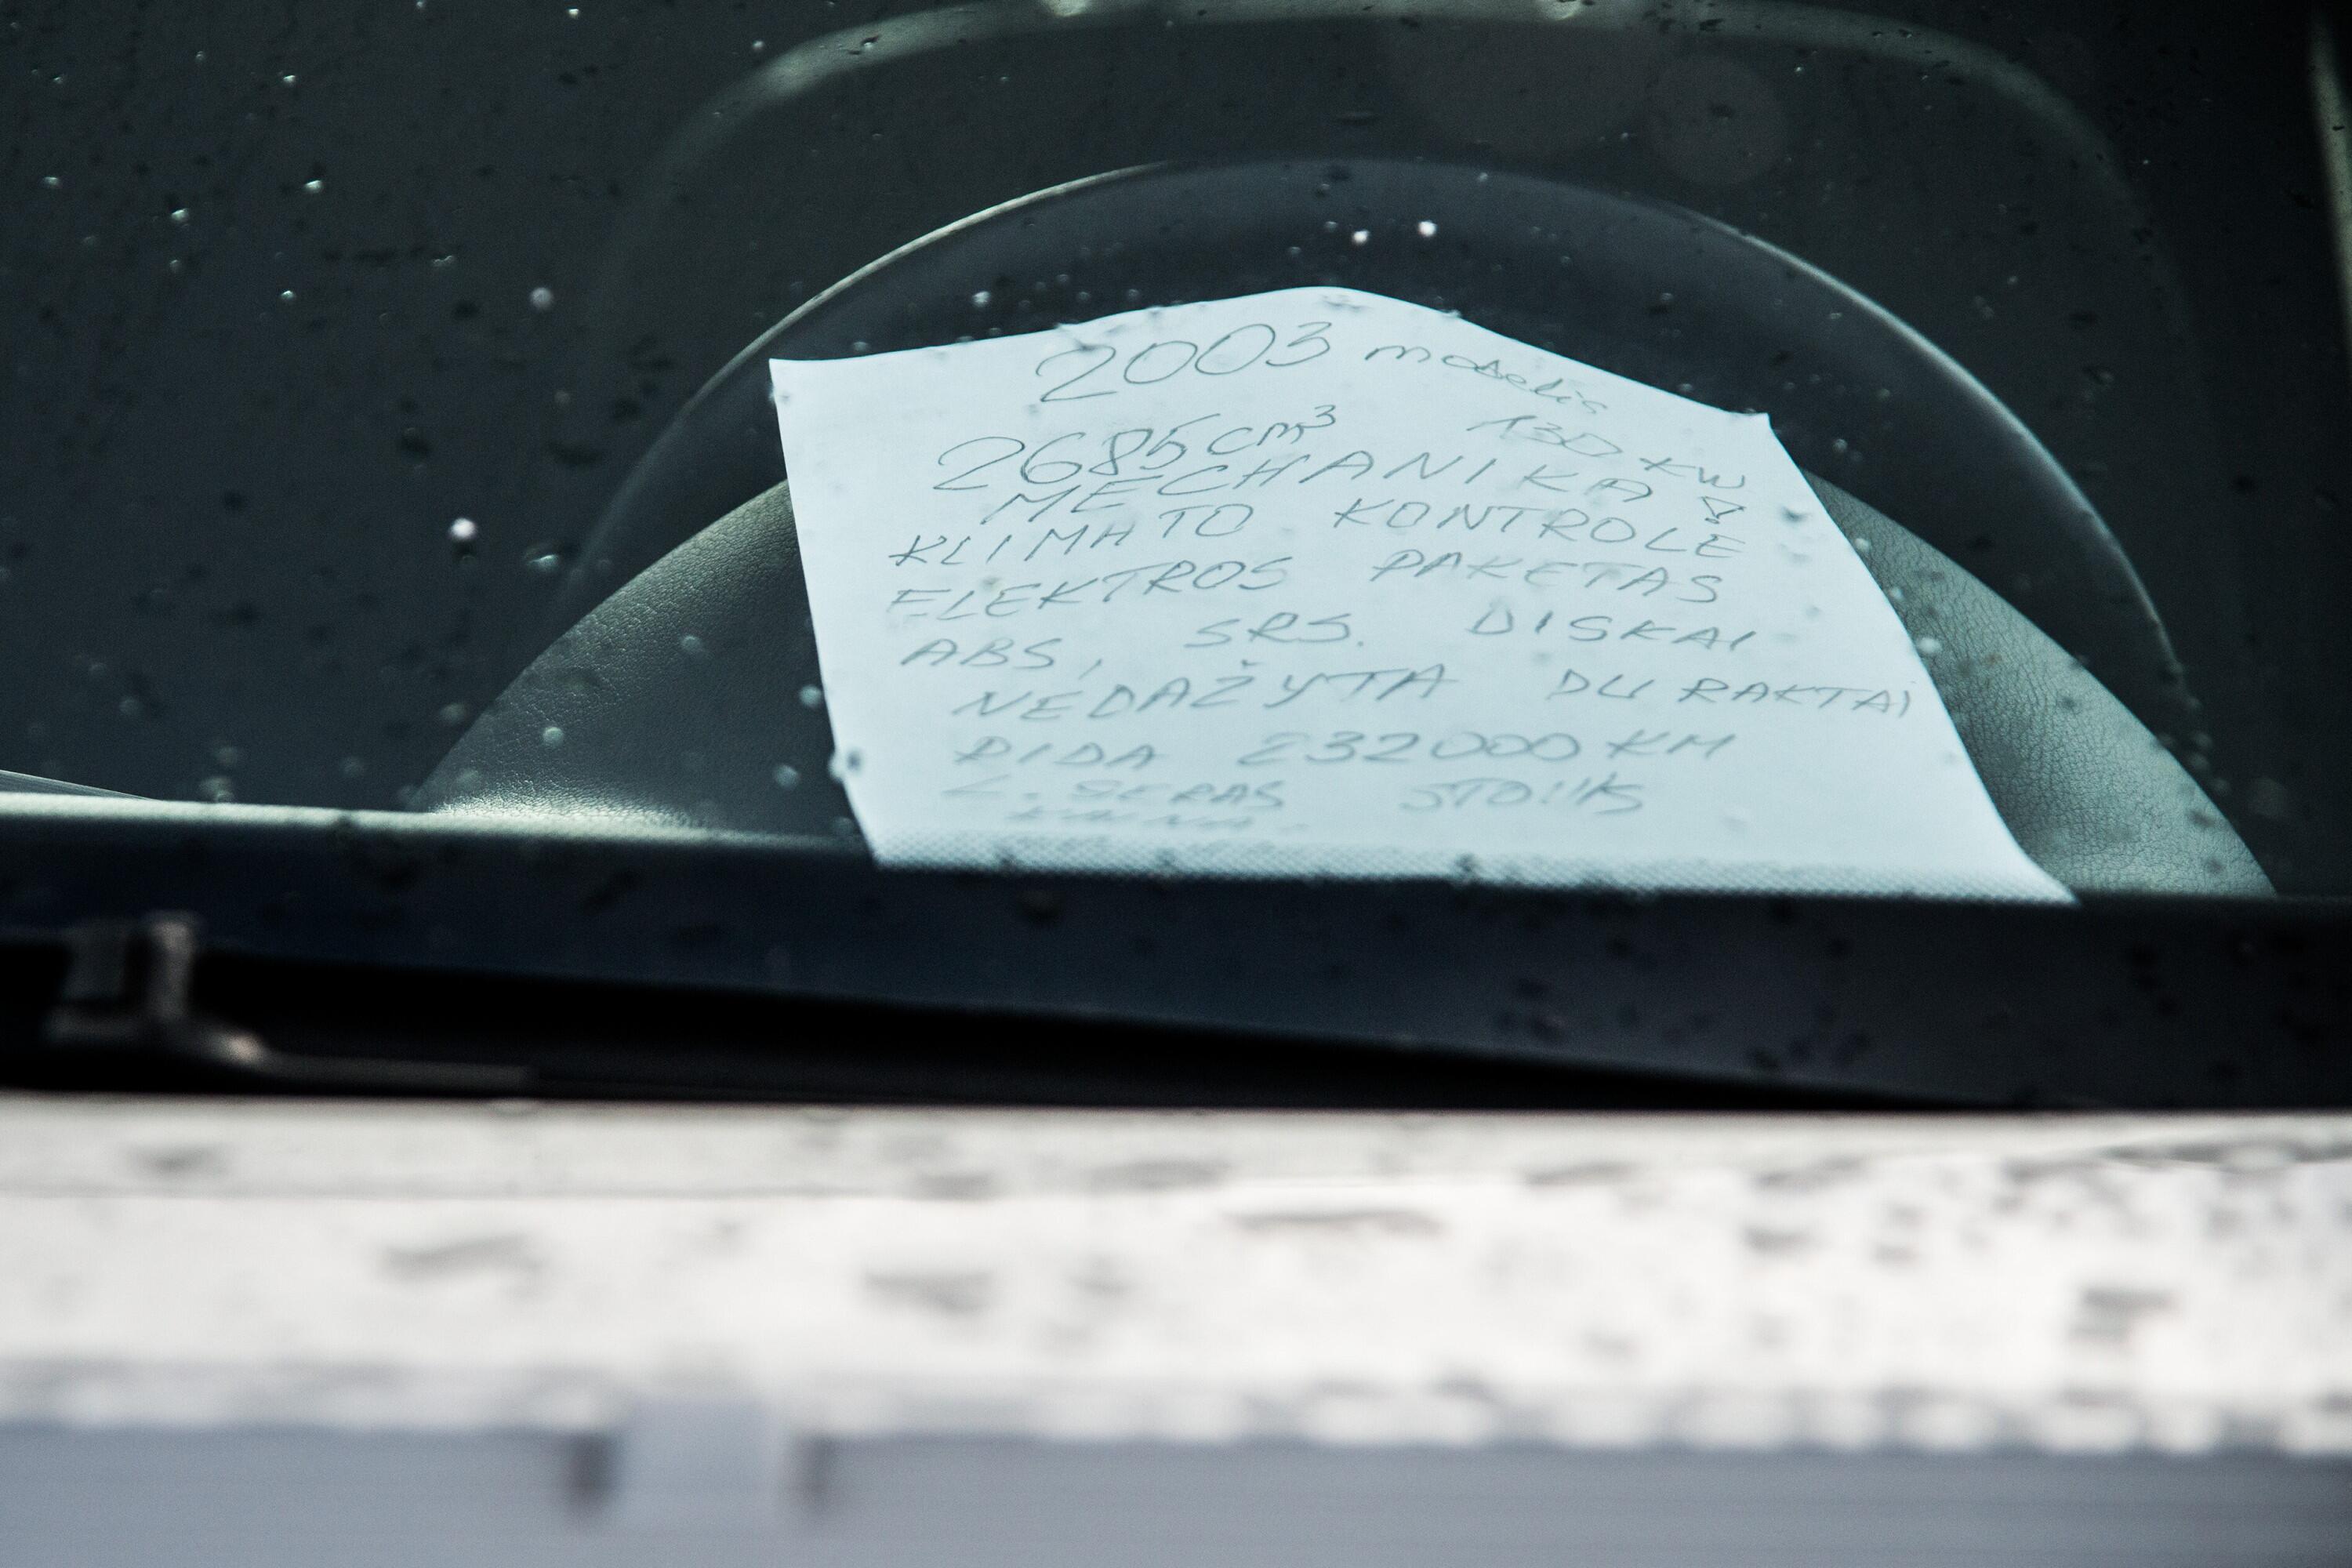 2003 modelis
2685 cm³ 130 KW
MECHANIKA!
KLIMATO KONTROLĖ
ELEKTROS PAKETAS
ABS, SRS. DISKAI
NEDAŽYTA DU RAKTAI
RIDA 232000 KM
L. GERAS STOVIS